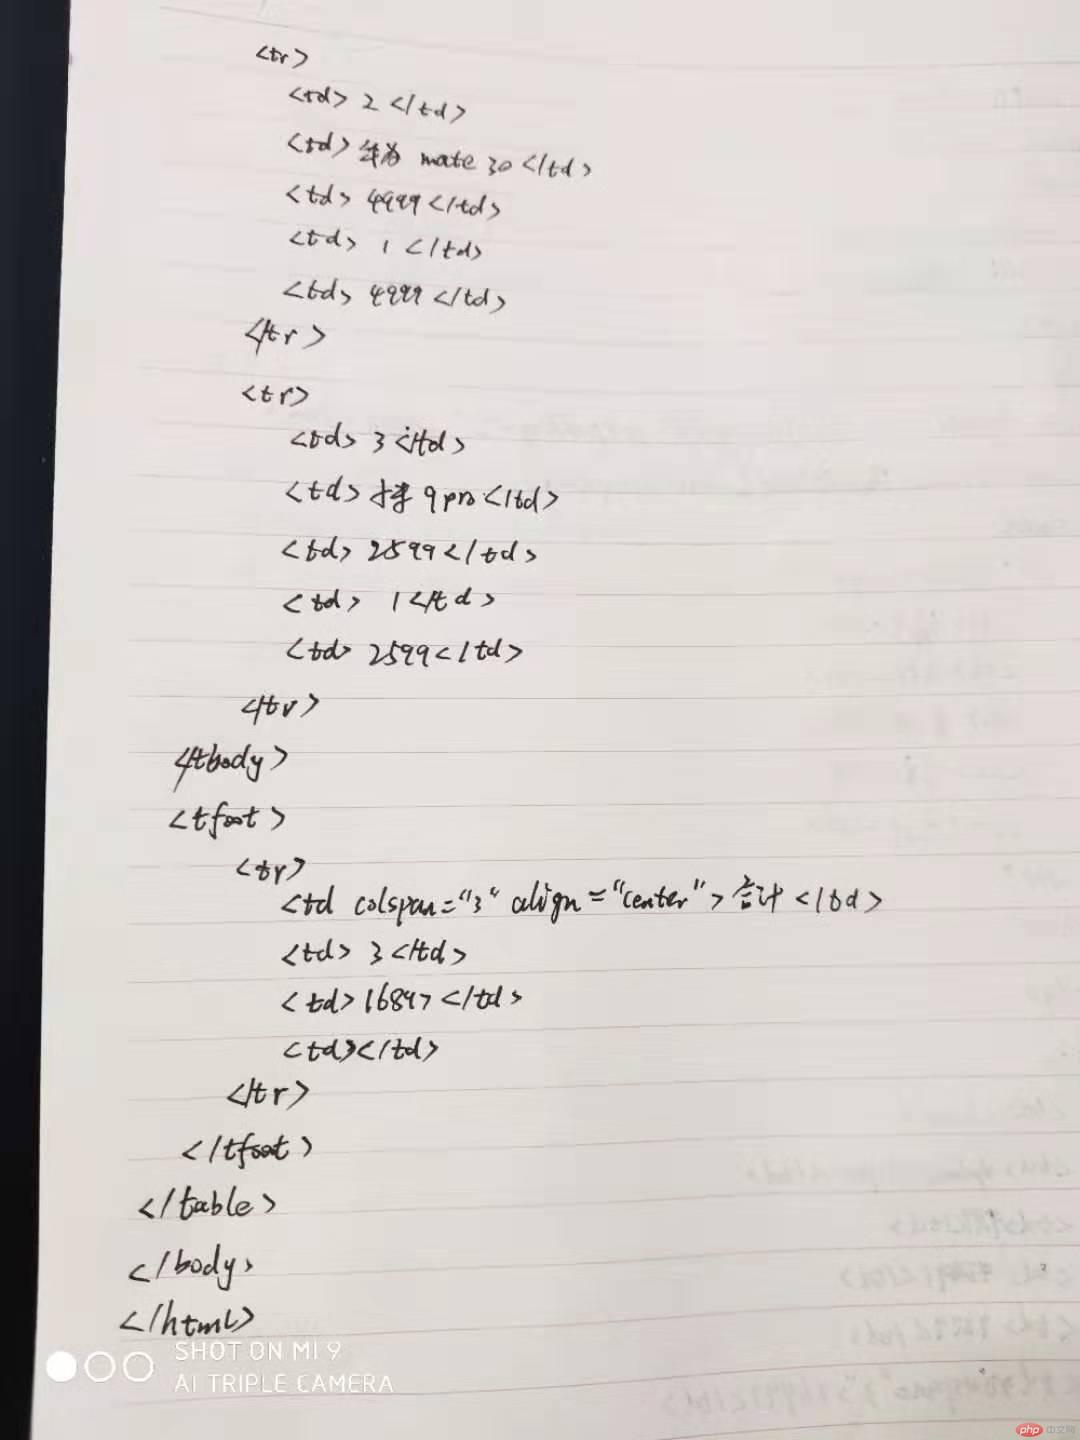 <tr>
<td> 2 </td>
<td> 华为 mate 30 </td>
<td> 4999 </td>
<td> 1 </td>
<td> 4999 </td>
</tr>
<tr>
<td> 3 </td>
<td> 9 pro </td>
<td> 2599 </td>
<td> 1 </td>
<td> 2599 </td>
</tr>
</tbody>
<tfoot>
<tr>
<td colspan="3" align="center"> 合计 </td>
<td> 3 </td>
<td> 16897 </td>
<td></td>
</tr>
</tfoot>
</table>
</body>
</html>
SHOT ON MI 9
AI TRIPLE CAMERA
php 中文网